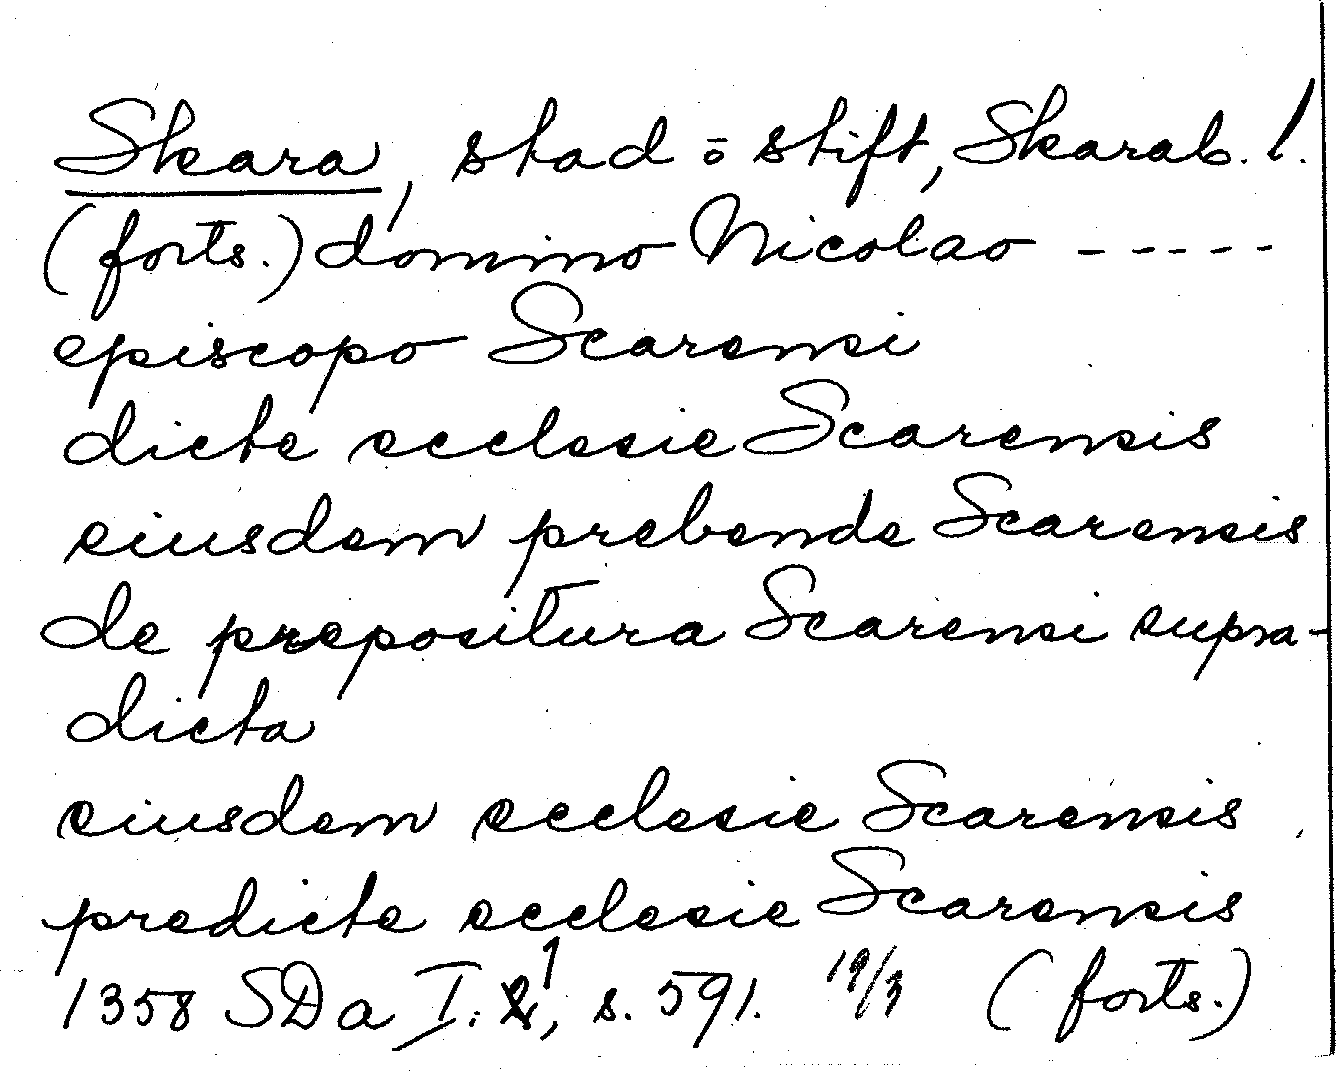 Skara, stad o stift, Skarab. l.
(forts.) domino Nicolao -----
episcopo Scarensi
dicte ecclesie Scarensis
eiusdem prebende Scarensis
de prepositura Scarensi supra-
dicta
eiusdem ecclesie Scarensis
predicte ecclesie Scarensis
1358 SDa I:1, s. 591. 19/3 (forts.)